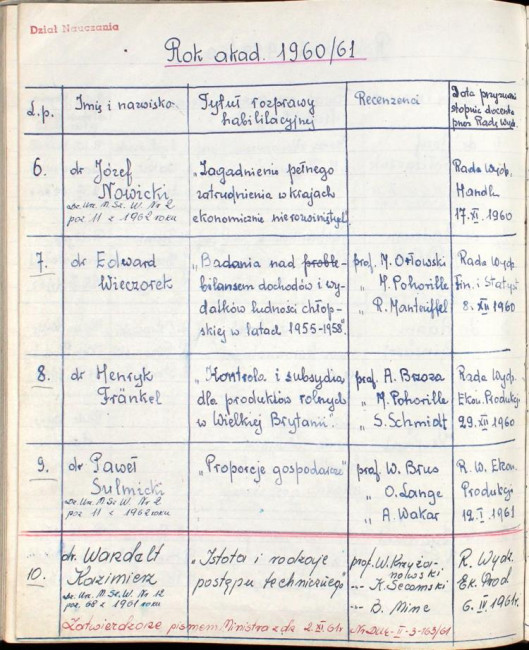 Dział Nauczania
Rok akad. 1960/61
L.p.
Imię i nazwisko
Tytuł rozprawy
habilitacyjnej
Recenzenci
Data przyznania
stopnia docenta
przez Radę Wydz.
6.
dr Józef
Nowicki
Dz. Urz. M. Sz. W. Nr 2
poz 11 z 1962 roku
„Zagadnienie pełnego
zatrudnienia w krajach
ekonomicznie nierozwiniętych"
Rada Wydz.
Handlu
17.VI.1960
7.
dr Edward
Wieczorek
„Badania nad
bilansem dochodów i wy-
datków ludności chłop-
skiej w latach 1955-1958"
prof. M. Orłowski
„ M. Pohorille
„ R. Manteuffel
Rada Wydz.
Fin. i Statyst.
8.XII 1960
8.
dr Henryk
Fränkel
„Kontrola i subsydia
dla produktów rolnych
w Wielkiej Brytanii"
prof. A. Brzoza
„ M. Pohorille
„ S. Schmidt
Rada Wydz.
Ekon. Produkcji
29.XII 1960
9.
dr Paweł
Sulmicki
Dz. Urz. M. Sz. W. Nr 2
poz 11 z 1962 roku
„Proporcje gospodarcze"
prof. W. Brus
„ O. Lange
„ A. Wakar
R. W. Ekon.
Produkcji
12.I.1961
10.
dr. Warzdelt
Kazimierz
Dz. Urz. M. Sz. W. Nr 12
poz. 68 z 1961 roku
„Istota i rodzaje
postępu technicznego"
prof. W. Krzyża-
nowski
-„- K. Secomski
-„- B. Minc
R. Wydz.
Ek. Prod
6.IV.1961r.
Zatwierdzone pismem Ministra z dn. 2.XI.61r